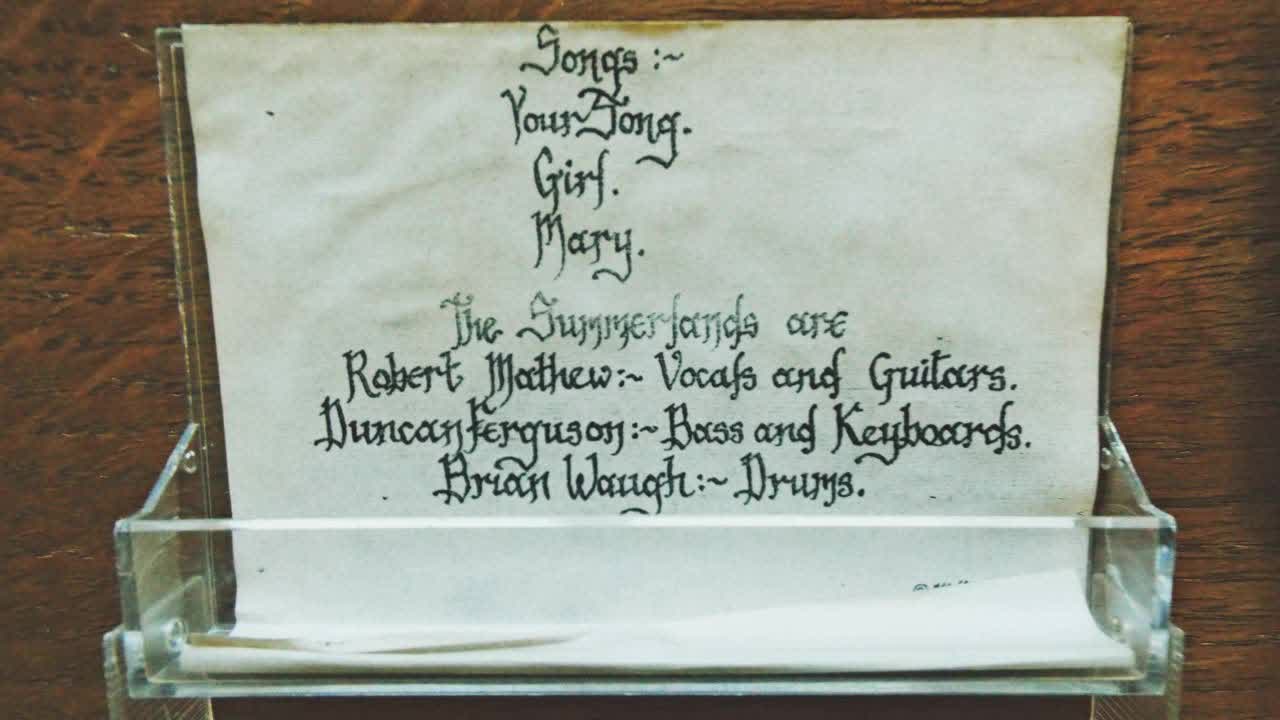 Songs :~
Your Song.
Girl.
Mary.
The Summerlands are
Robert Mathew:~ Vocals and Guitars.
Duncan Ferguson:~ Bass and Keyboards.
Brian Waugh:~ Drums.